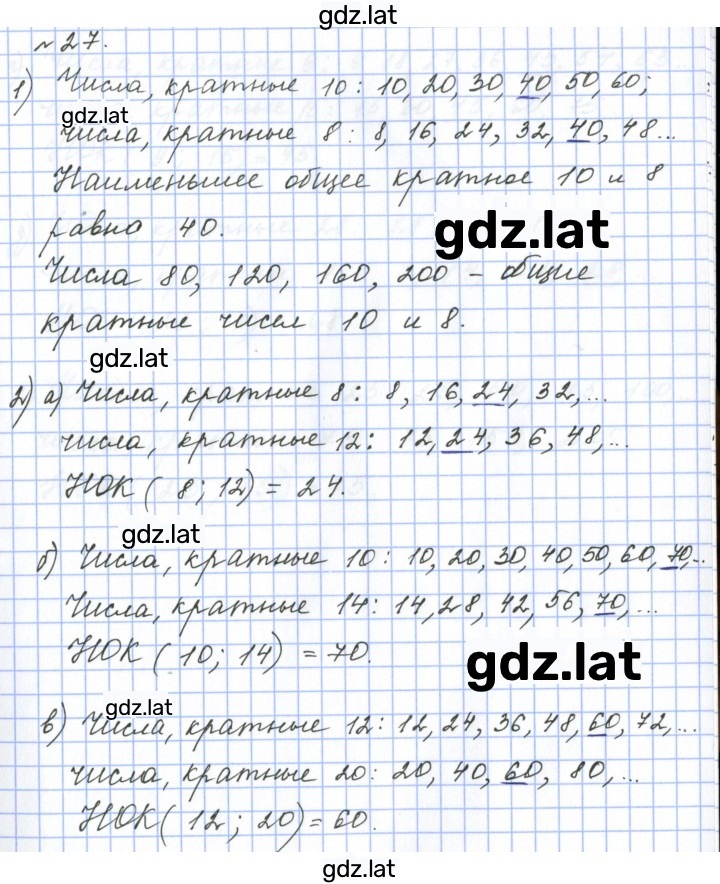 gdz.lat
№ 27.
1) Числа, кратные 10: 10, 20, 30, 40, 50, 60;
gdz.lat
числа, кратные 8: 8, 16, 24, 32, 40, 48...
Наименьшее общее кратное 10 и 8
равно 40.
gdz.lat
Числа 80, 120, 160, 200 – общие
кратные чисел 10 и 8.
gdz.lat
2) а) Числа, кратные 8: 8, 16, 24, 32,...
числа, кратные 12: 12, 24, 36, 48,...
НОК (8; 12) = 24.
gdz.lat
б) Числа, кратные 10: 10, 20, 30, 40, 50, 60, 70,..
Числа, кратные 14: 14, 28, 42, 56, 70, ...
НОК (10; 14) = 70.
gdz.lat
gdz.lat
в) Числа, кратные 12: 12, 24, 36, 48, 60, 72,...
числа, кратные 20: 20, 40, 60, 80, ...
НОК (12; 20) = 60.
gdz.lat